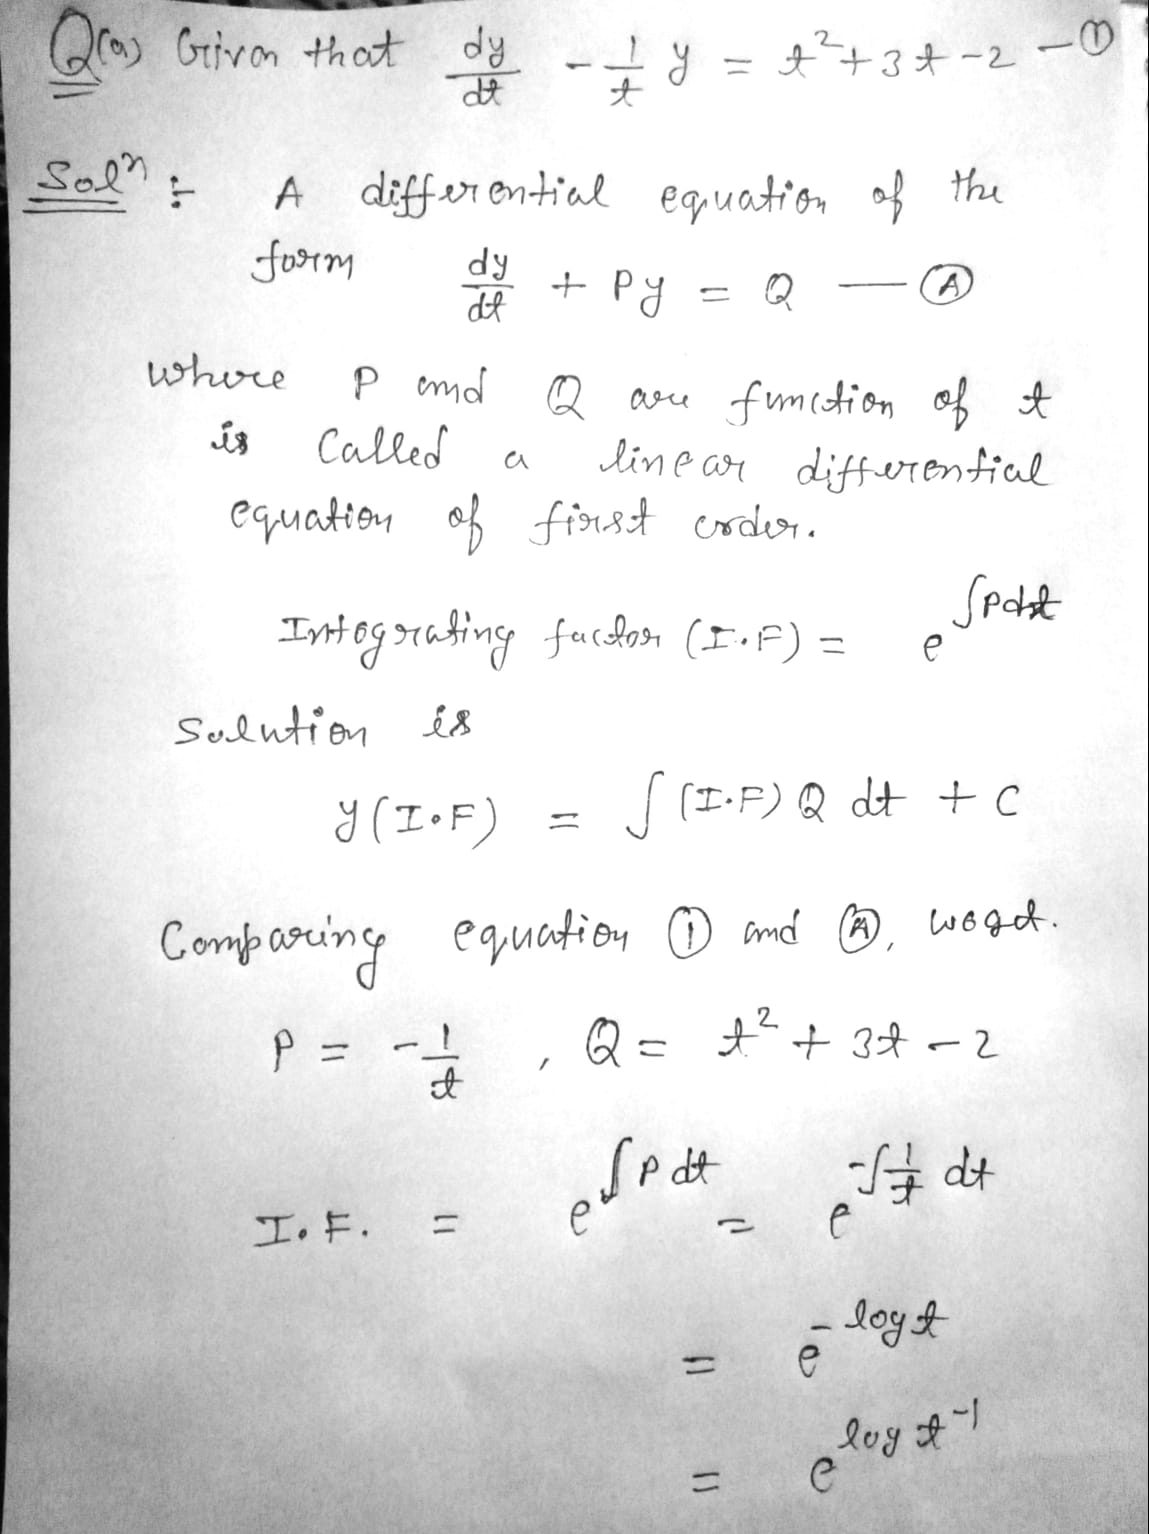 Q(a) Given that dy/dt - 1/t y = t² + 3t - 2 — ①
Solⁿ :- A differential equation of the
form dy/dt + Py = Q — Ⓐ
where P and Q are function of t
is Called a linear differential
equation of first order.
Integrating factor (I.F) = e^∫Pdt
Solution is
y(I.F) = ∫(I.F) Q dt + C
Comparing equation ① and Ⓐ, we get.
P = -1/t , Q = t² + 3t - 2
I.F. = e^∫P dt = e^-∫1/t dt
= e^-log t
= e^log t^-1